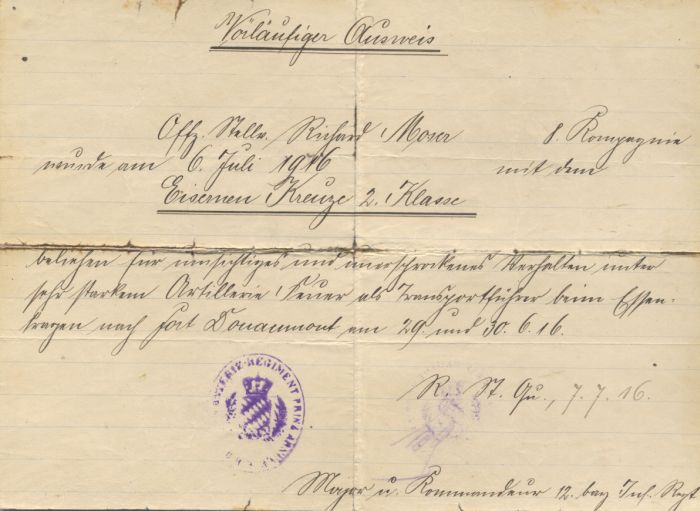 Vorläufiger Ausweis
Offz. Stellv. Richard Moser 8. Kompagnie
wurde am 6. Juli 1916 mit dem
Eisernen Kreuze 2. Klasse
beliehen für umsichtiges und unerschrockenes Verhalten unter
sehr starkem Artillerie Feuer als Transportführer beim Essen-
tragen nach Fort Douaumont am 29. und 30.6.16.
R. St. Qu., 7.7.16.
REGIMENT PRINZ ARNULF
Major u. Kommandeur 12. bay Inf. Regt